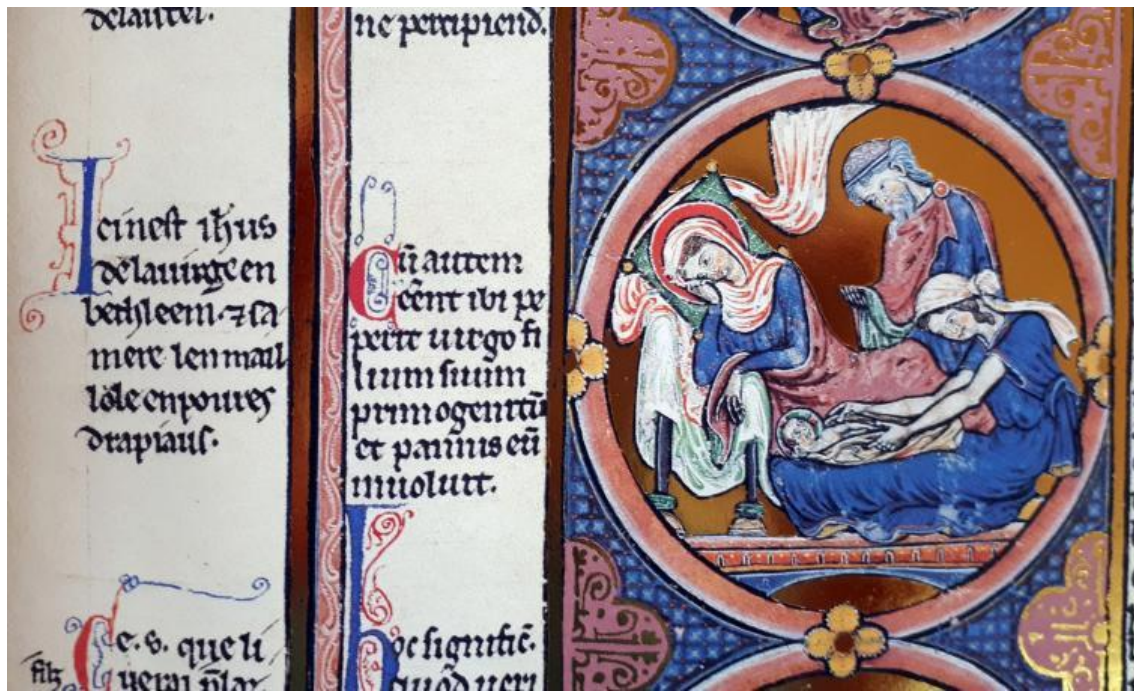 delautel.
Icinest ih̄us
delauirge en
bethleem. ⁊ sa
mere len mail
lole enpoures
drapiaus.
Ce. s. que li
filz
ne percipiend.
Cū autem
eēnt ibi pe
perit uirgo fi
lium suum
primogenitū
et pannis eū
inuoluit.
hoc signific̄.
quod ueri